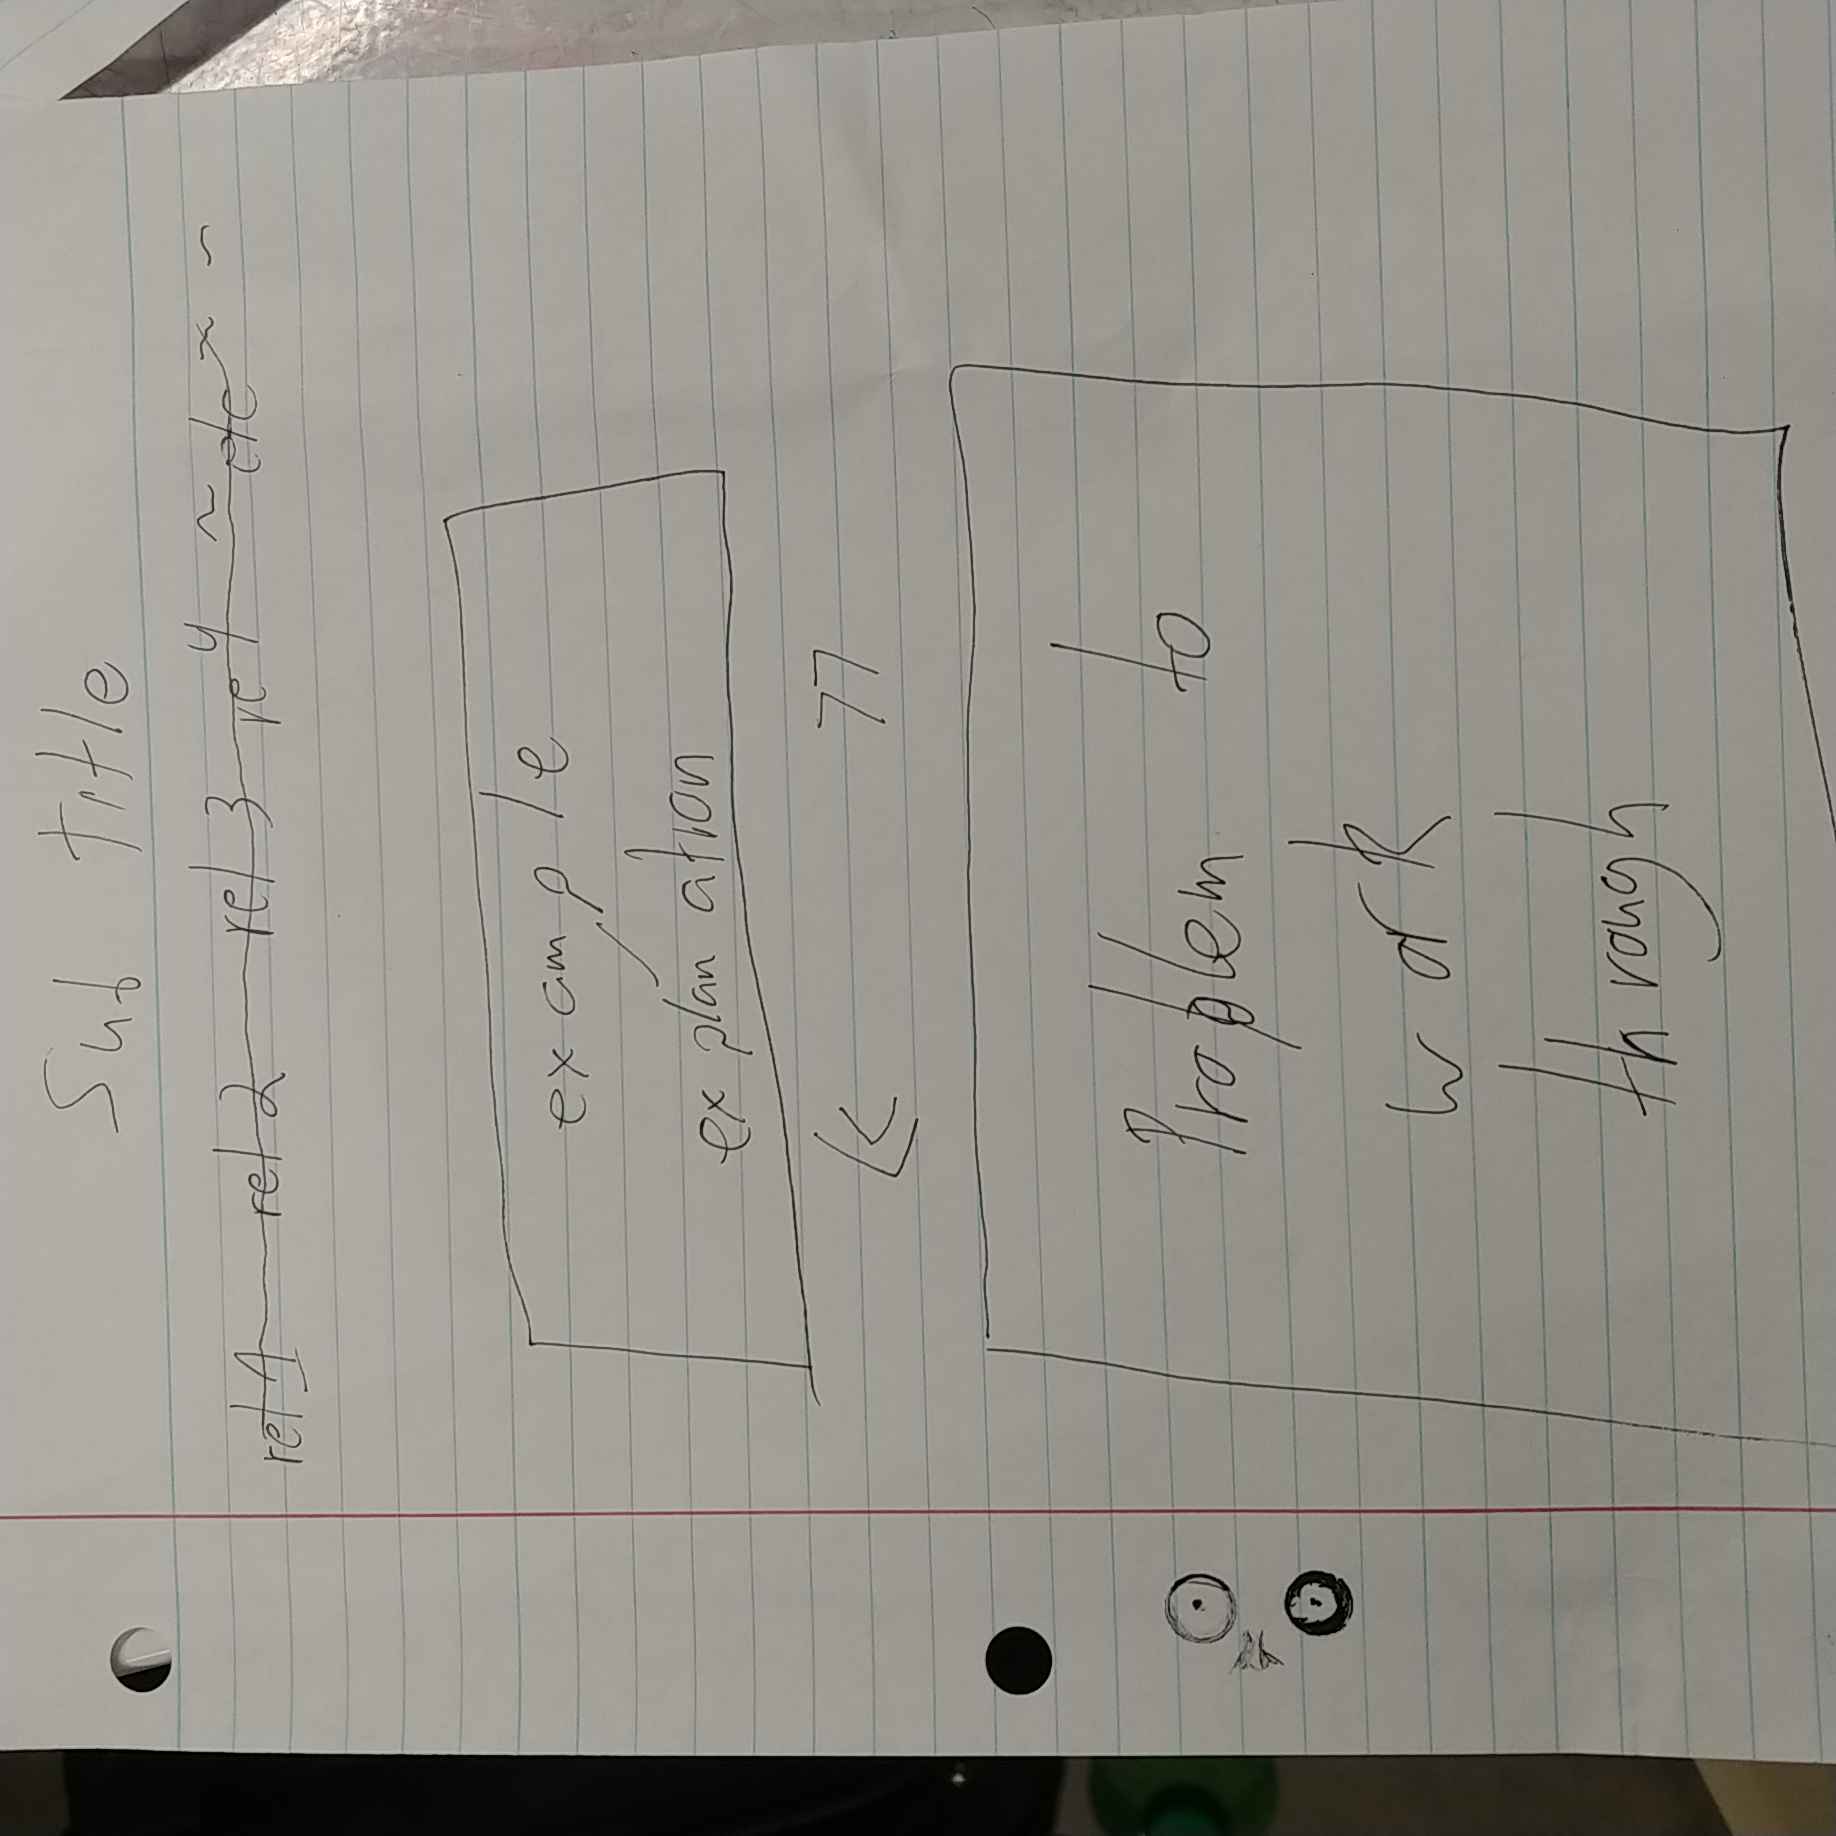 Sub Title
ref 1 ref 2 ref 3 re 4 ~ etc ~ ~
example
explanation
<< >>
Problem to
work
through